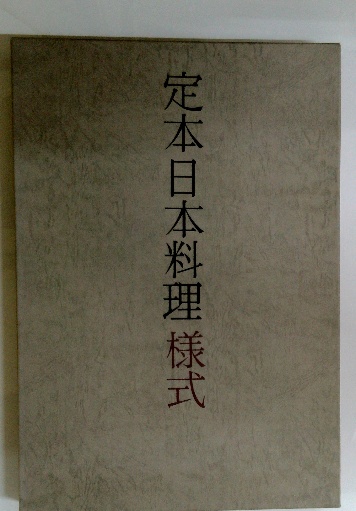 定本日本料理 様式